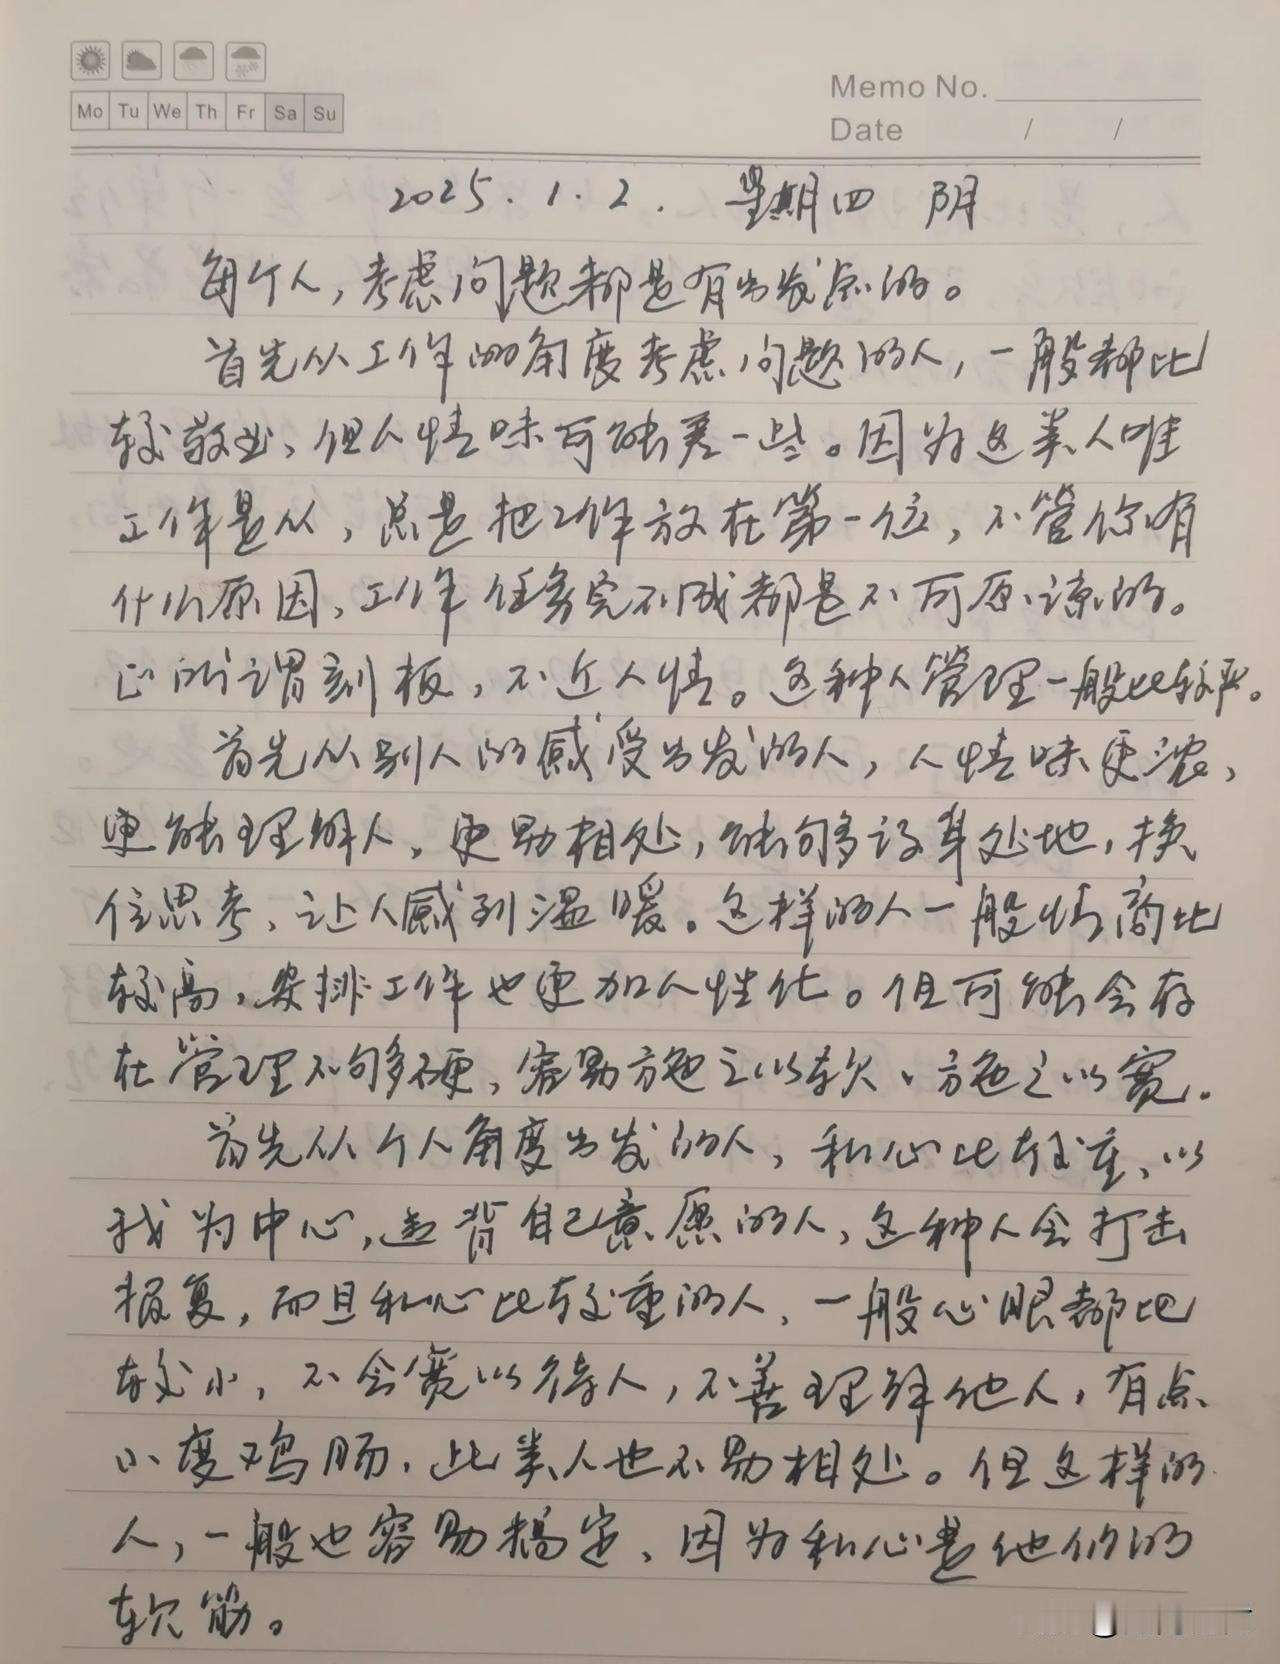 Mo Tu We Th Fr Sa Su
Memo No.
Date / /
2025.1.2. 星期四 阴
每个人,考虑问题都是有出发点的。
首先从工作的角度考虑问题的人,一般都比
较敬业、但人情味可能差一些。因为这类人唯
工作是从,总是把工作放在第一位,不管你有
什么原因、工作任务完不成都是不可原谅的。
正所谓刻板,不近人情。这种人管理一般比较严。
首先从别人的感受出发的人,人情味更浓,
更能理解人,更易相处,能够多设身处地,换
位思考、让人感到温暖。这样的人一般情商比
较高,安排工作也更加人性化。但可能会存
在管理不够多硬,容易施之以软、施之以宽.
首先从个人角度出发的人,私心比较重、以
我为中心,违背自己意愿的人,这种人会打击
报复,而且私心比较重的人、一般心眼都比
较小,不会宽以待人,不善理解他人,有点
小度鸡肠,此类人也不易相处。但这样的
人,一般也容易搞定、因为私心是他们的
软筋。